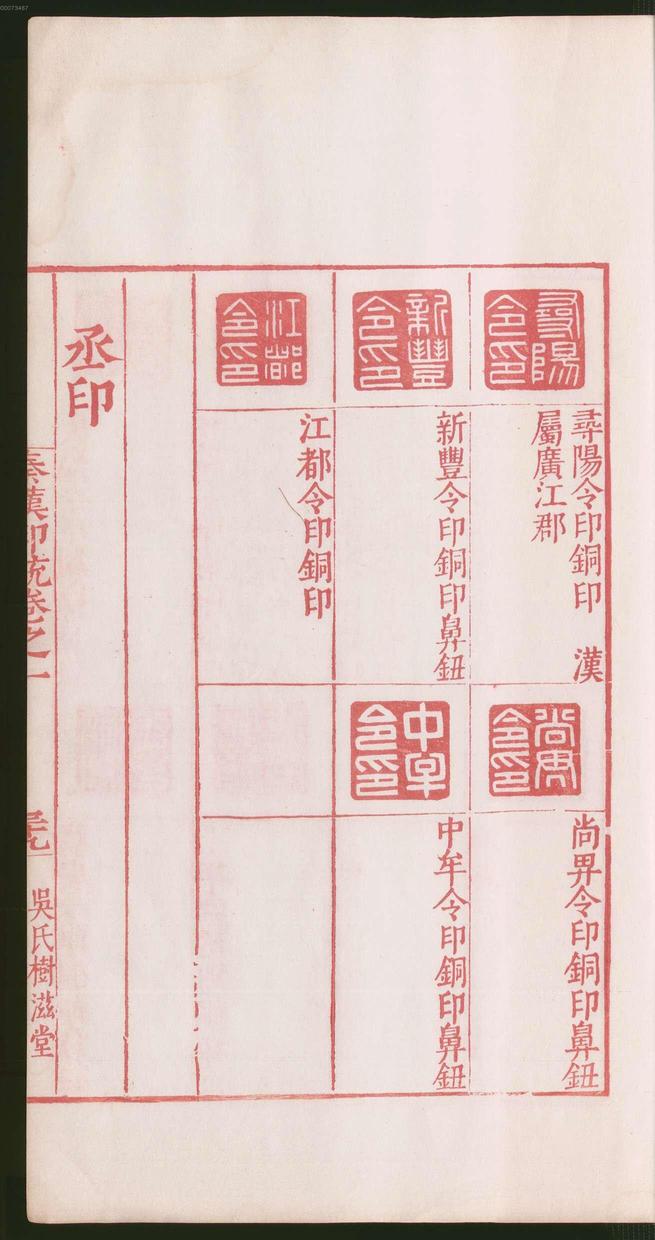 00073467
尋陽令印
尋陽令印銅印　漢
屬廣江郡
尚畀令印銅印鼻鈕
新豐令印
新豐令印銅印鼻鈕
中牟令印
中牟令印銅印鼻鈕
江都令印
江都令印銅印
丞印
秦漢印統卷之一
吳氏樹滋堂